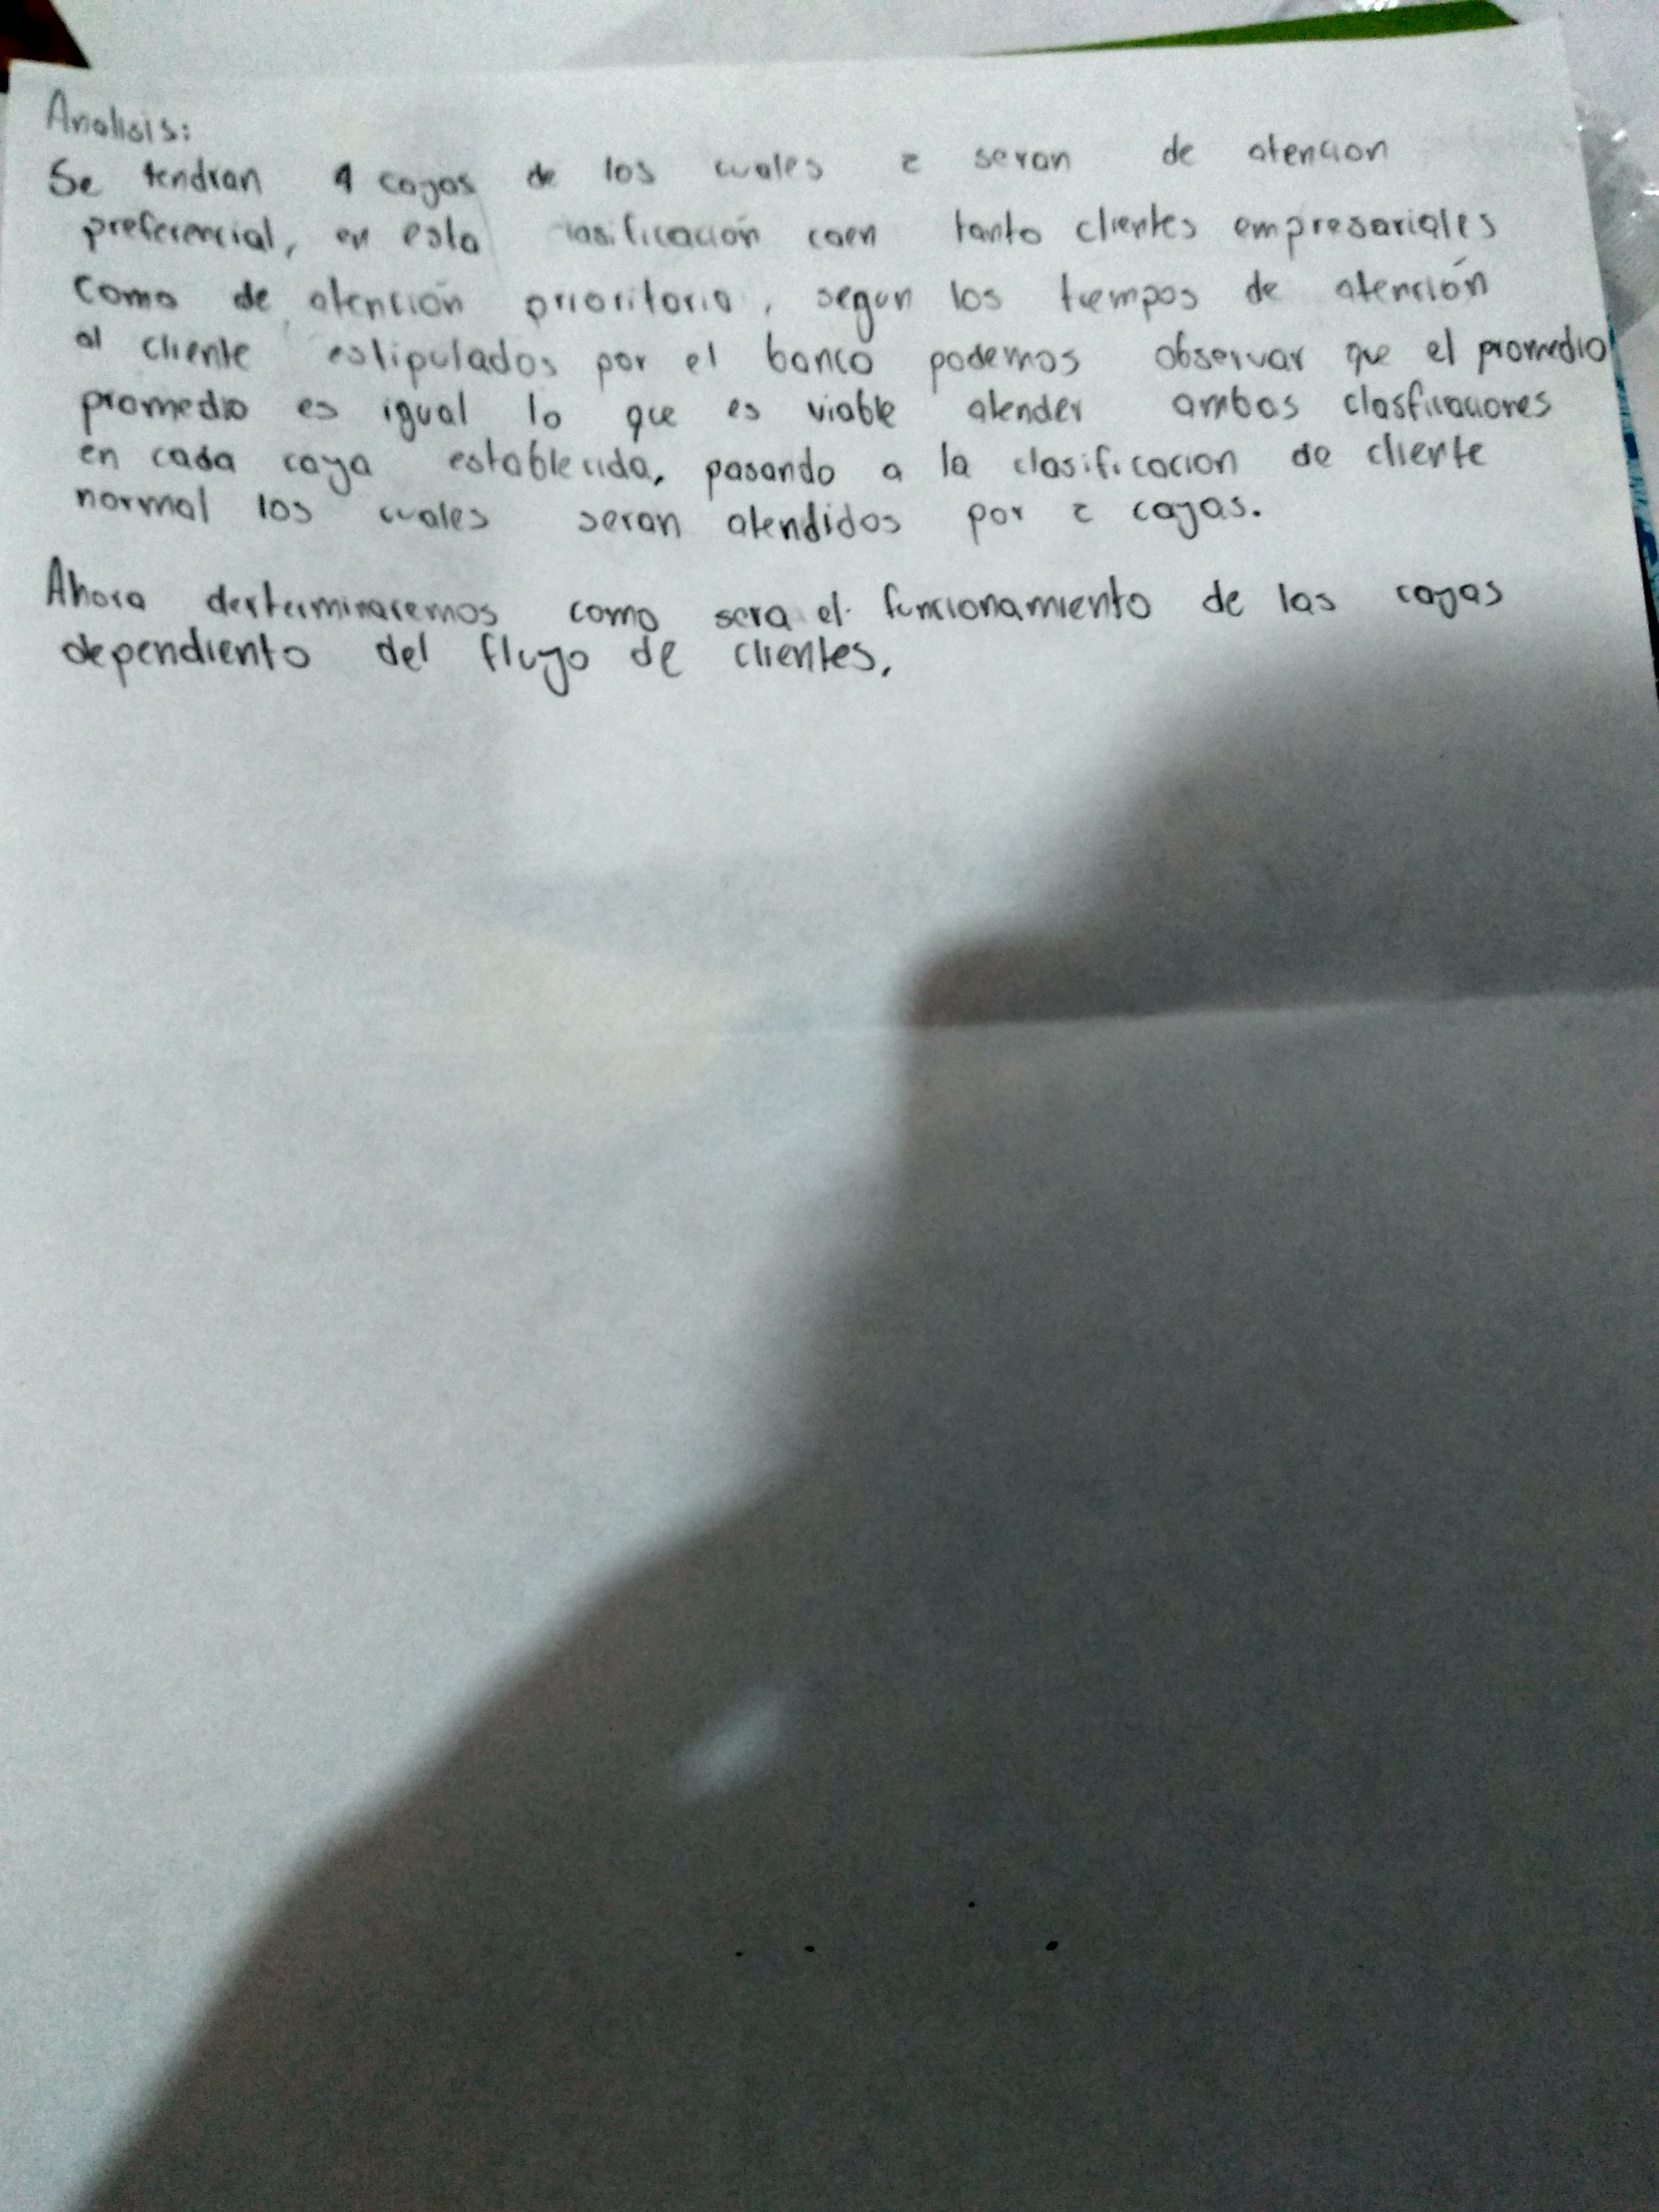 Analisis:
Se tendran 4 cajas de los cuales 2 seran de atencion
preferencial, en esta clasificación caen tanto clientes empresariales
como de atención prioritoria, segun los tiempos de atención
al cliente estipulados por el banco podemos observar que el promedio
promedio es igual lo que es viable atender ambas clasficaciones
en cada caja establecida, pasando a la clasificacion de cliente
normal los cuales seran atendidos por 2 cajas.
Ahora desterminaremos como sera el funcionamiento de las cajas
dependiento del flujo de clientes.